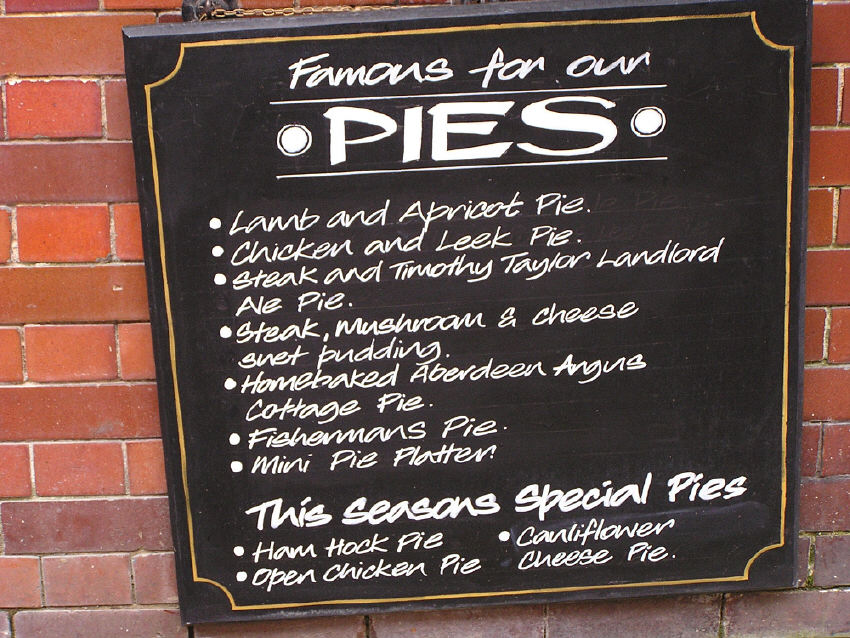 Famous for our
PIES
• Lamb and Apricot Pie.
• Chicken and Leek Pie.
• Steak and Timothy Taylor Landlord
Ale Pie.
• Steak, Mushroom & cheese
suet pudding.
• Homebaked Aberdeen Angus
Cottage Pie.
• Fishermans Pie.
• Mini Pie Platter!
This Seasons Special Pies
• Ham Hock Pie
• Open Chicken Pie
• Cauliflower
Cheese Pie.